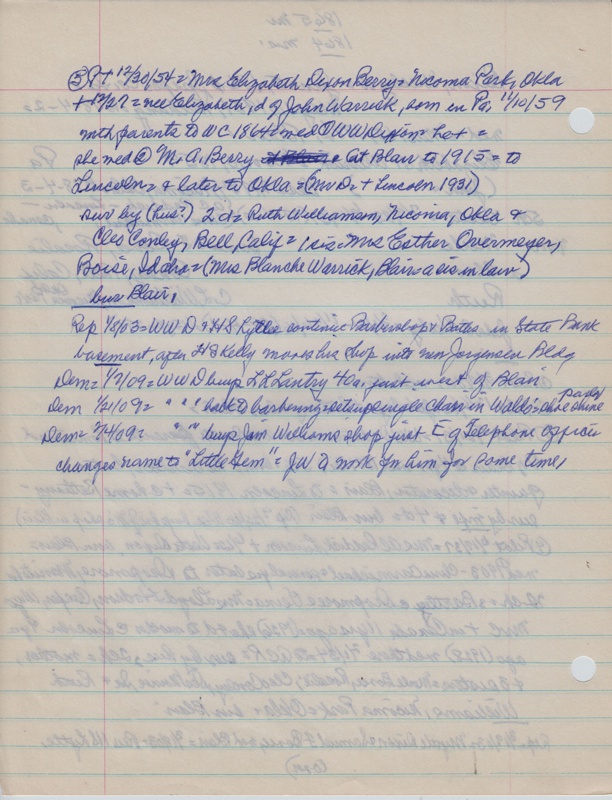 ③ P+ 12/30/54 = Mrs Elizabeth Dixon Berry = Nicoma Park, Okla
+ 12/27 = nee Elizabeth, d of John Warrick, born in Pa, 11/10/59
with parents to WC 1864 = med ① WW Dixon
she med ② M.A. Berry at Blair to 1915 = to
Lincoln = & later to Okla = (mv Dr + Lincoln 1931)
sur by (hus?) 2 ds = Ruth Williamson, Nicoma, Okla &
Cleo Conley, Bell, Calif = 1 sis = Mrs Esther Overmeyer,
Boise, Idaho = (Mrs Blanche Warrick, Blair = a sis in law)
bur Blair,
Rep 1/8/03 = WW D & HS Lytle continue Barbershop & Baths in State Bank
basement, after HS Kelly moves his shop into new Jorgensen Bldg
Dem = 1/7/09 = WW D buys LL Lantry 40a, just west of Blair
Dem 1/21/09 = " " " back to barbering = setup single chair in Waldo's shoe shine parlor
Dem = 7/4/09 = " " " buys Jim Williams shop just E of Telephone office
changes name to "Little Gem" = JW to work for him for some time,